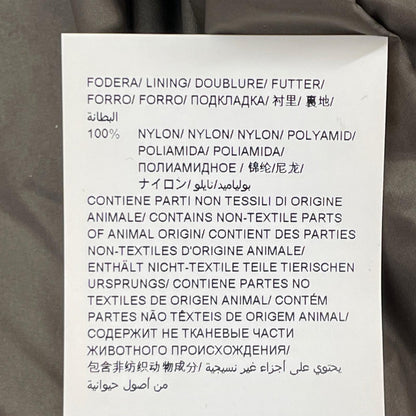 FODERA/ LINING/ DOUBLURE/ FUTTER/
FORRO/ FORRO/ ПОДКЛАДКА/ 衬里/ 裏地/
البطانة
100% NYLON/ NYLON/ NYLON/ POLYAMID/
POLIAMIDA/ POLIAMIDA/
ПОЛИАМИДНОЕ / 锦纶/尼龙/
ナイロン/ بولياميد/نايلو
CONTIENE PARTI NON TESSILI DI ORIGINE
ANIMALE/ CONTAINS NON-TEXTILE PARTS
OF ANIMAL ORIGIN/ CONTIENT DES PARTIES
NON-TEXTILES D'ORIGINE ANIMALE/
ENTHÄLT NICHT-TEXTILE TEILE TIERISCHEN
URSPRUNGS/ CONTIENE PARTES NO
TEXTILES DE ORIGEN ANIMAL/ CONTÉM
PARTES NÃO TÊXTEIS DE ORIGEM ANIMAL/
СОДЕРЖИТ НЕ ТКАНЕВЫЕ ЧАСТИ
ЖИВОТНОГО ПРОИСХОЖДЕНИЯ/
包含非纺织动物成分/ يحتوي على أجزاء غير نسيجية
من أصول حيوانية